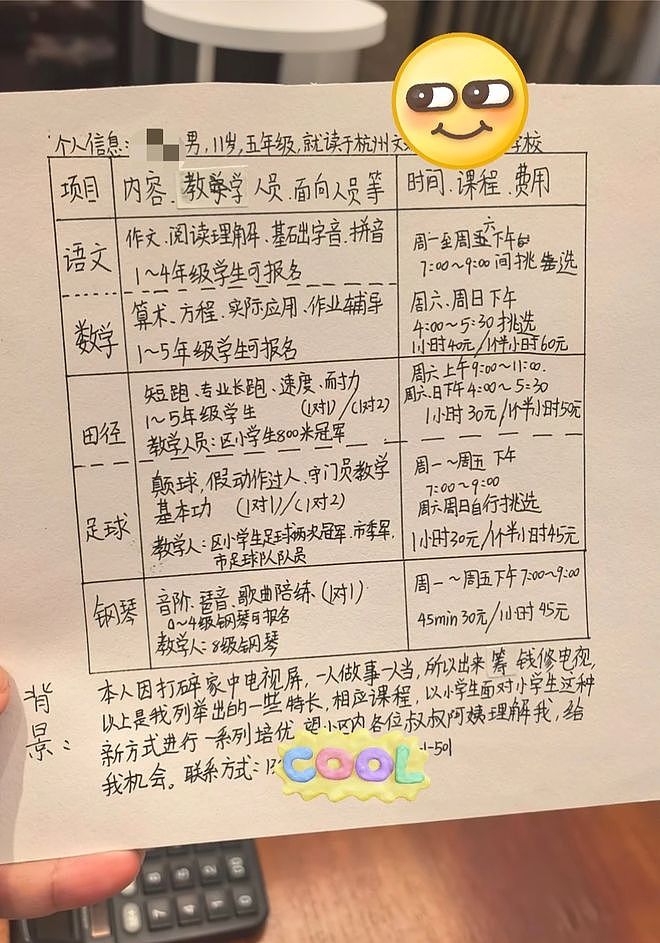 个人信息: 男,11岁,五年级,就读于杭州文 学校
项目 内容、教学 人员、面向人员等 时间、课程、费用
语文 作文、阅读理解、基础字音、拼音
1~4年级学生可报名
周一至周五下午
7:00~9:00间挑选
数学 算术、方程、实际应用、作业辅导
1~5年级学生可报名
周六、周日下午
4:00~5:30挑选
1小时40元/1个半小时60元
田径 短跑、专业长跑、速度、耐力
1~5年级学生 (1对1)/(1对2)
教学人员:区小学生800米冠军
周六上午9:00~11:00.
周六.日下午4:00~5:30
1小时30元/1个半小时50元
足球 颠球,假动作过人、守门员教学
基本功 (1对1)/(1对2)
教学人:区小学生足球两次冠军、市季军,
市足球队队员
周一~周五 下午
7:00~9:00
周六周日自行挑选
1小时30元/1个半小时45元
钢琴 音阶、琶音、歌曲陪练、(1对1)
0~4级钢琴可报名
教学人:8级钢琴
周一~周五下午7:00~9:00
45min 30元/1小时45元
背景:
本人因打碎家中电视屏,一人做事一人当,所以出来筹钱修电视,
以上是我列举出的一些特长,相应课程,以小学生面对小学生这种
新方式进行一系列培优,望小区内各位叔叔阿姨理解我,给
我机会。联系方式:13 1-501
COOL